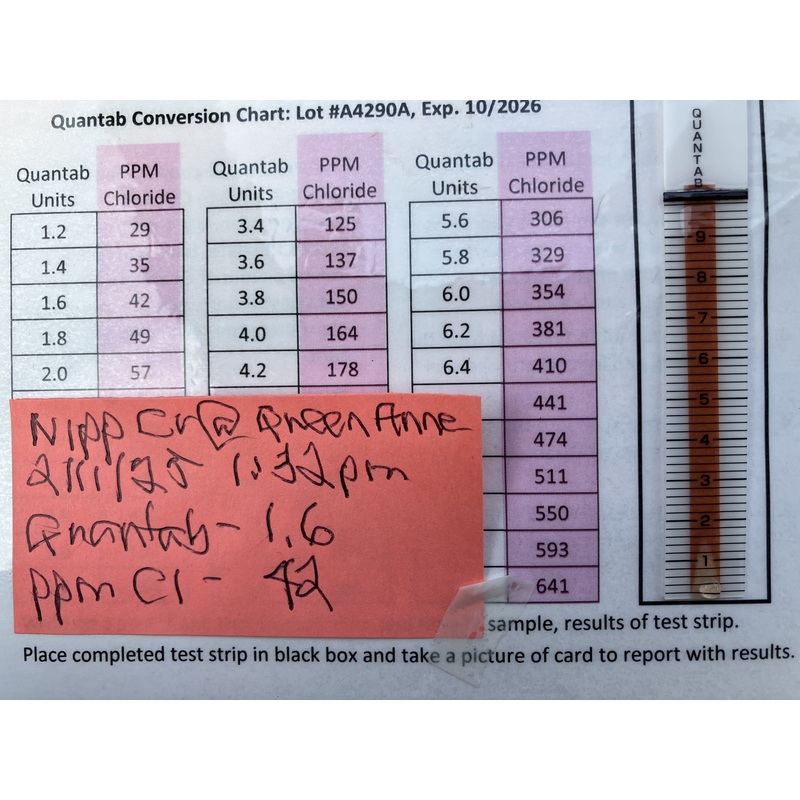 Quantab Conversion Chart: Lot #A4290A, Exp. 10/2026
Quantab Units PPM Chloride
1.2 29
1.4 35
1.6 42
1.8 49
2.0 57
Quantab Units PPM Chloride
3.4 125
3.6 137
3.8 150
4.0 164
4.2 178
Quantab Units PPM Chloride
5.6 306
5.8 329
6.0 354
6.2 381
6.4 410
441
474
511
550
593
641
QUANTAB
9
8
7
6
5
4
3
2
1
Nipp Cr @ Queen Anne
2/11/25 1:32pm
Quantab - 1.6
ppm Cl - 42
sample, results of test strip.
Place completed test strip in black box and take a picture of card to report with results.